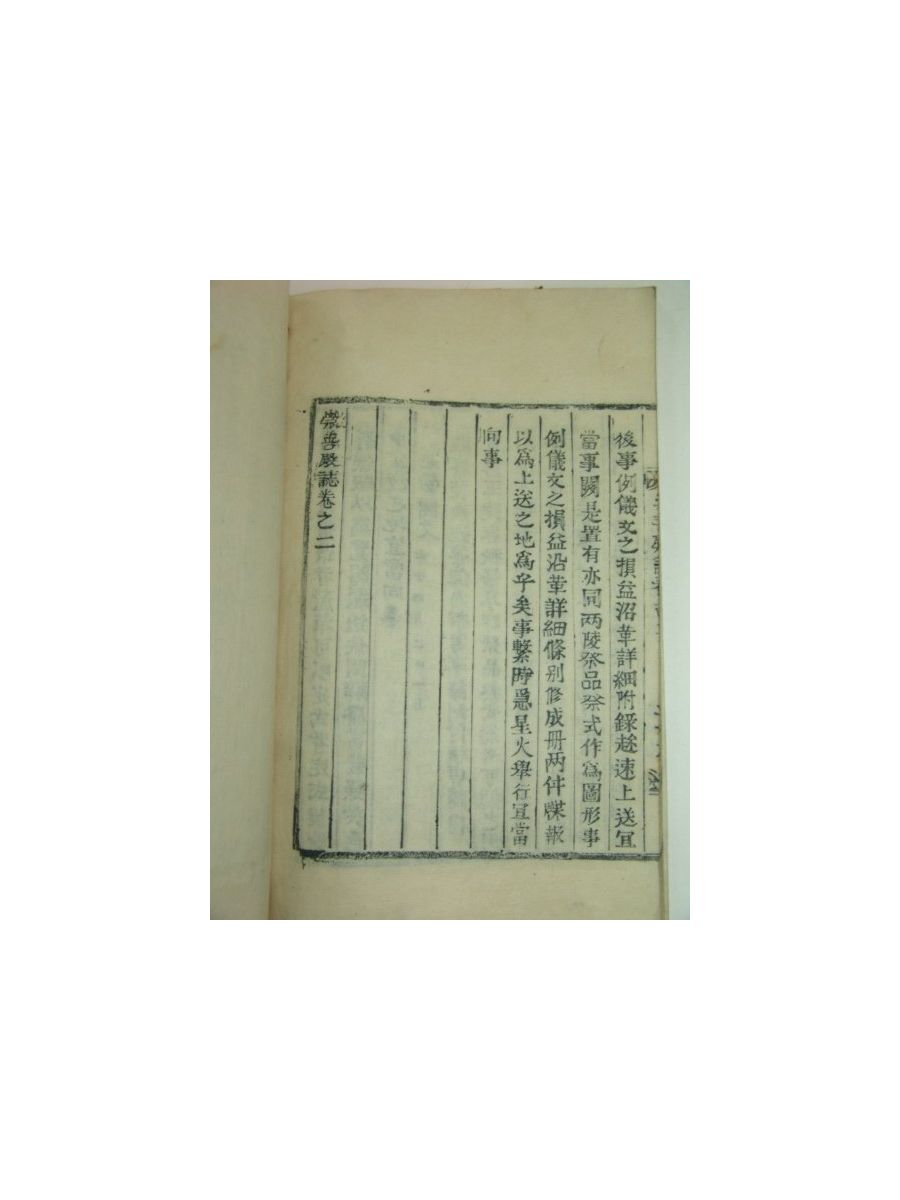 後事例儀文之損益沿革詳細附錄趂速上送宜
當事關是置有亦同两陵祭品祭式作爲圖形事
例儀文之損益沿革詳細條別修成册两件牒報
以爲上送之地爲乎矣事繫時急星火舉行宜當
向事
崇善殿誌卷之二